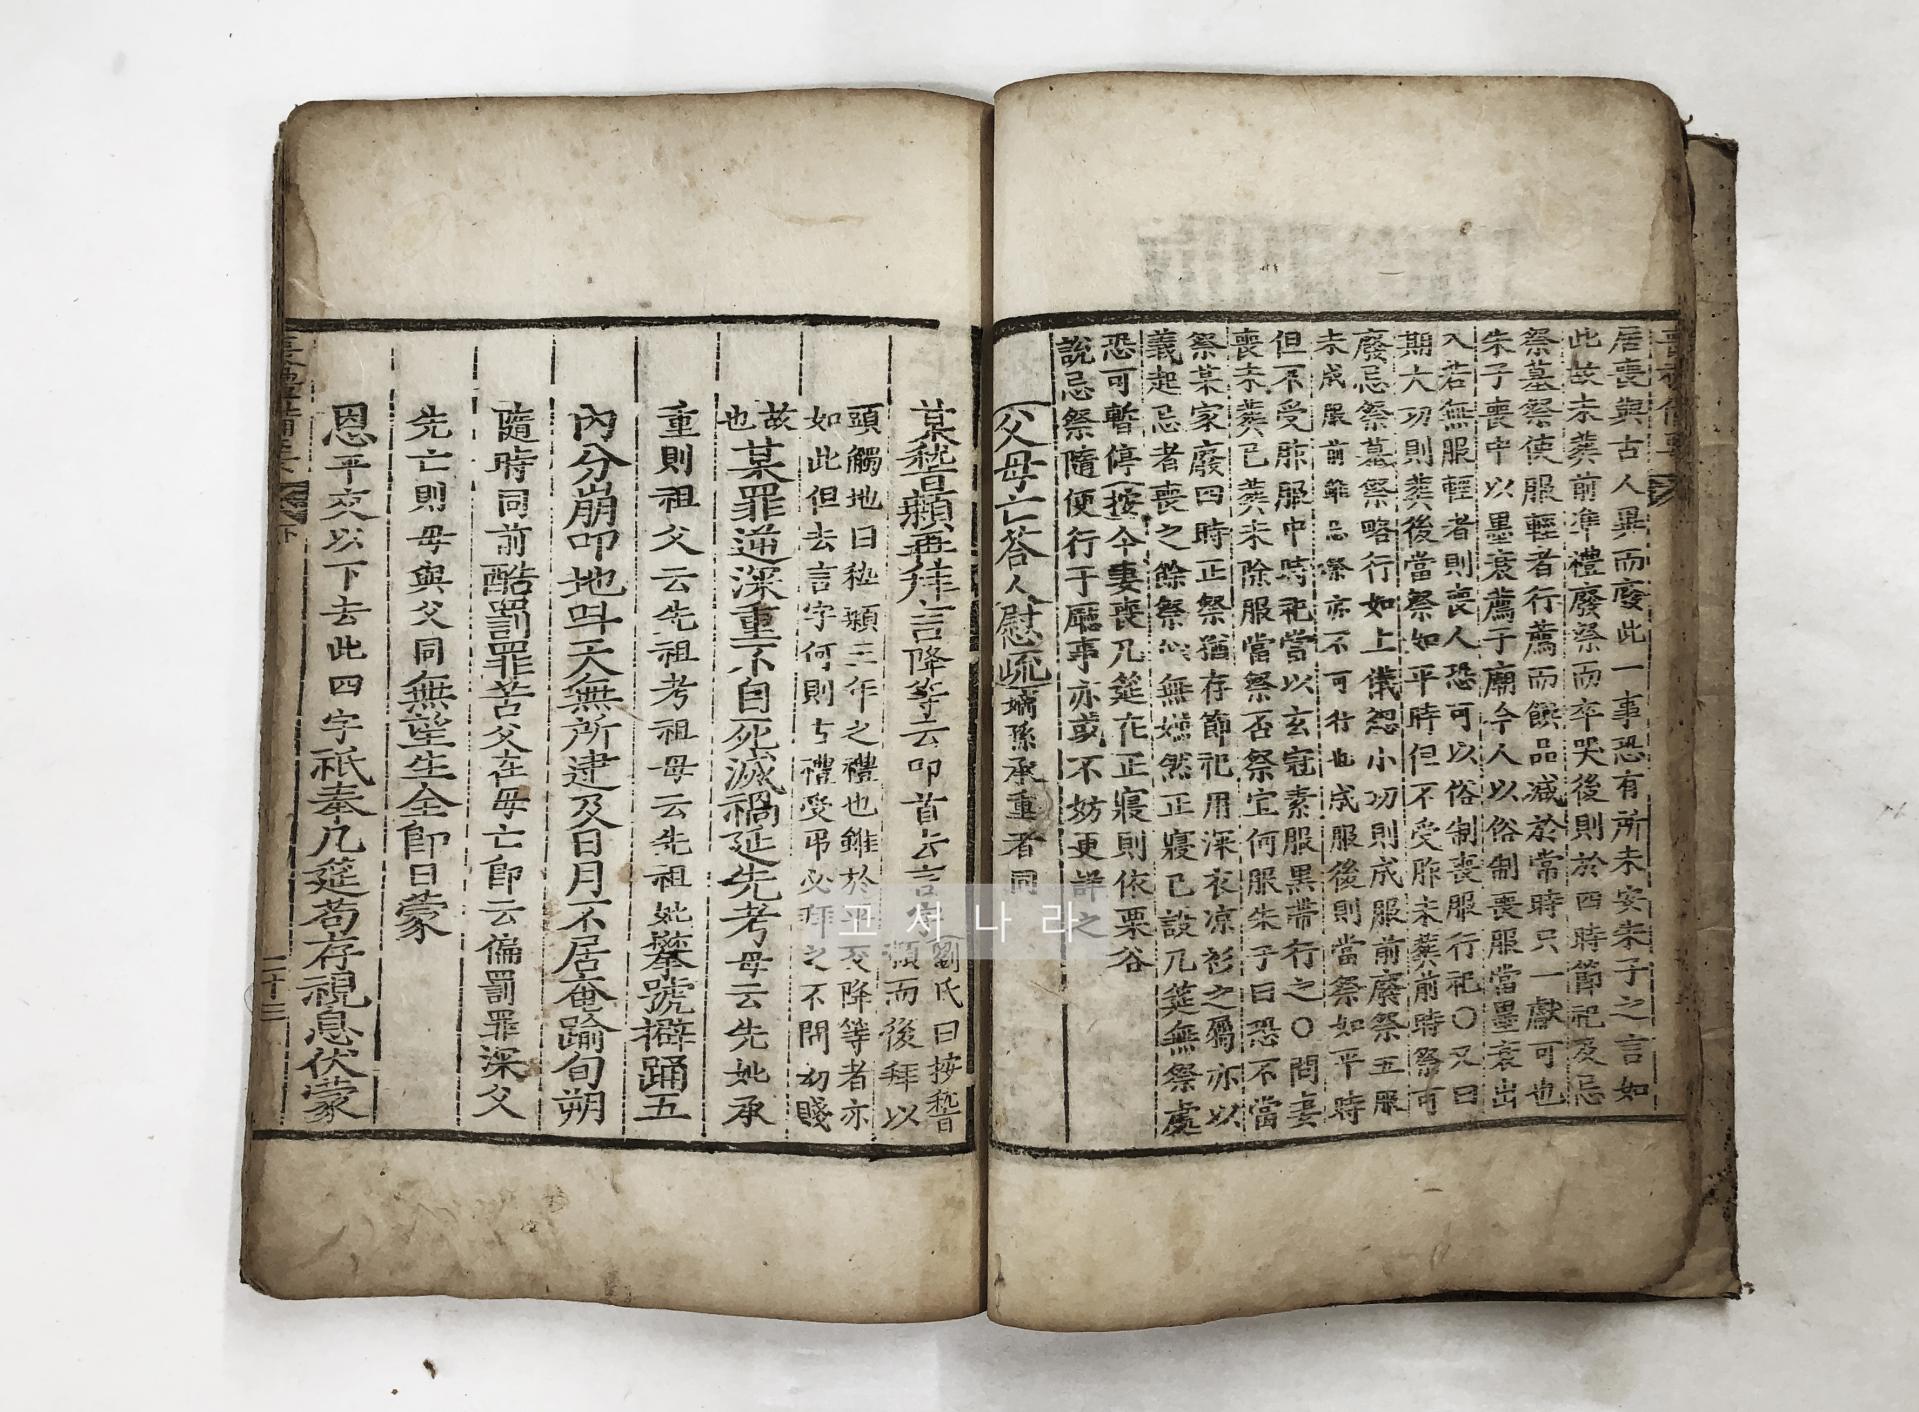 居喪與古人異而廢此一事恐有所未安朱子之言如
此故未葬前準禮廢祭而卒哭後則於四時節祀及忌
祭墓祭使服輕者行薦而饌品減於常時只一獻可也
朱子喪中以墨衰薦于廟今人以俗制喪服當墨衰出
入若無服輕者則喪人恐可以俗制喪服行祀○又曰
期大功則葬後當祭如平時但不受胙未葬前時祭可
廢忌祭墓祭略行如上儀緦小功則成服前廢祭五服
未成服前雖忌祭亦不可行也成服後則當祭如平時
但不受胙服中時祀當以玄冠素服黑帶行之○問妻
喪未葬已葬未除服當祭否祭宜何服朱子曰恐不當
祭某家廢四時正祭猶存節祀用深衣凉衫之屬亦以
義起忌者喪之餘祭似無嫌然正寢已設几筵無祭處
恐可暫停按今妻喪几筵在正寢則依栗谷
說忌祭隨便行于廳事亦或不妨更詳之
父母亡荅人慰疏嫡孫承重者同
某稽顙再拜言降等云叩首去言字劉氏曰按稽
顙而後拜以
頭觸地曰稽顙三年之禮也雖於平交降等者亦
如此但去言字何則古禮受弔必拜之不問幼賤
故
也某罪逆深重不自死滅禍延先考母云先妣承
重則祖父云先祖考祖母云先祖妣攀號擗踊五
內分崩叩地叫天無所逮及日月不居奄踰旬朔
隨時同前酷罰罪苦父在母亡卽云偏罰罪深父
先亡則母與父同無望生全卽日蒙
恩平交以下去此四字祗奉几筵苟存視息伏蒙
喪禮備要
下
二十三
고서나라